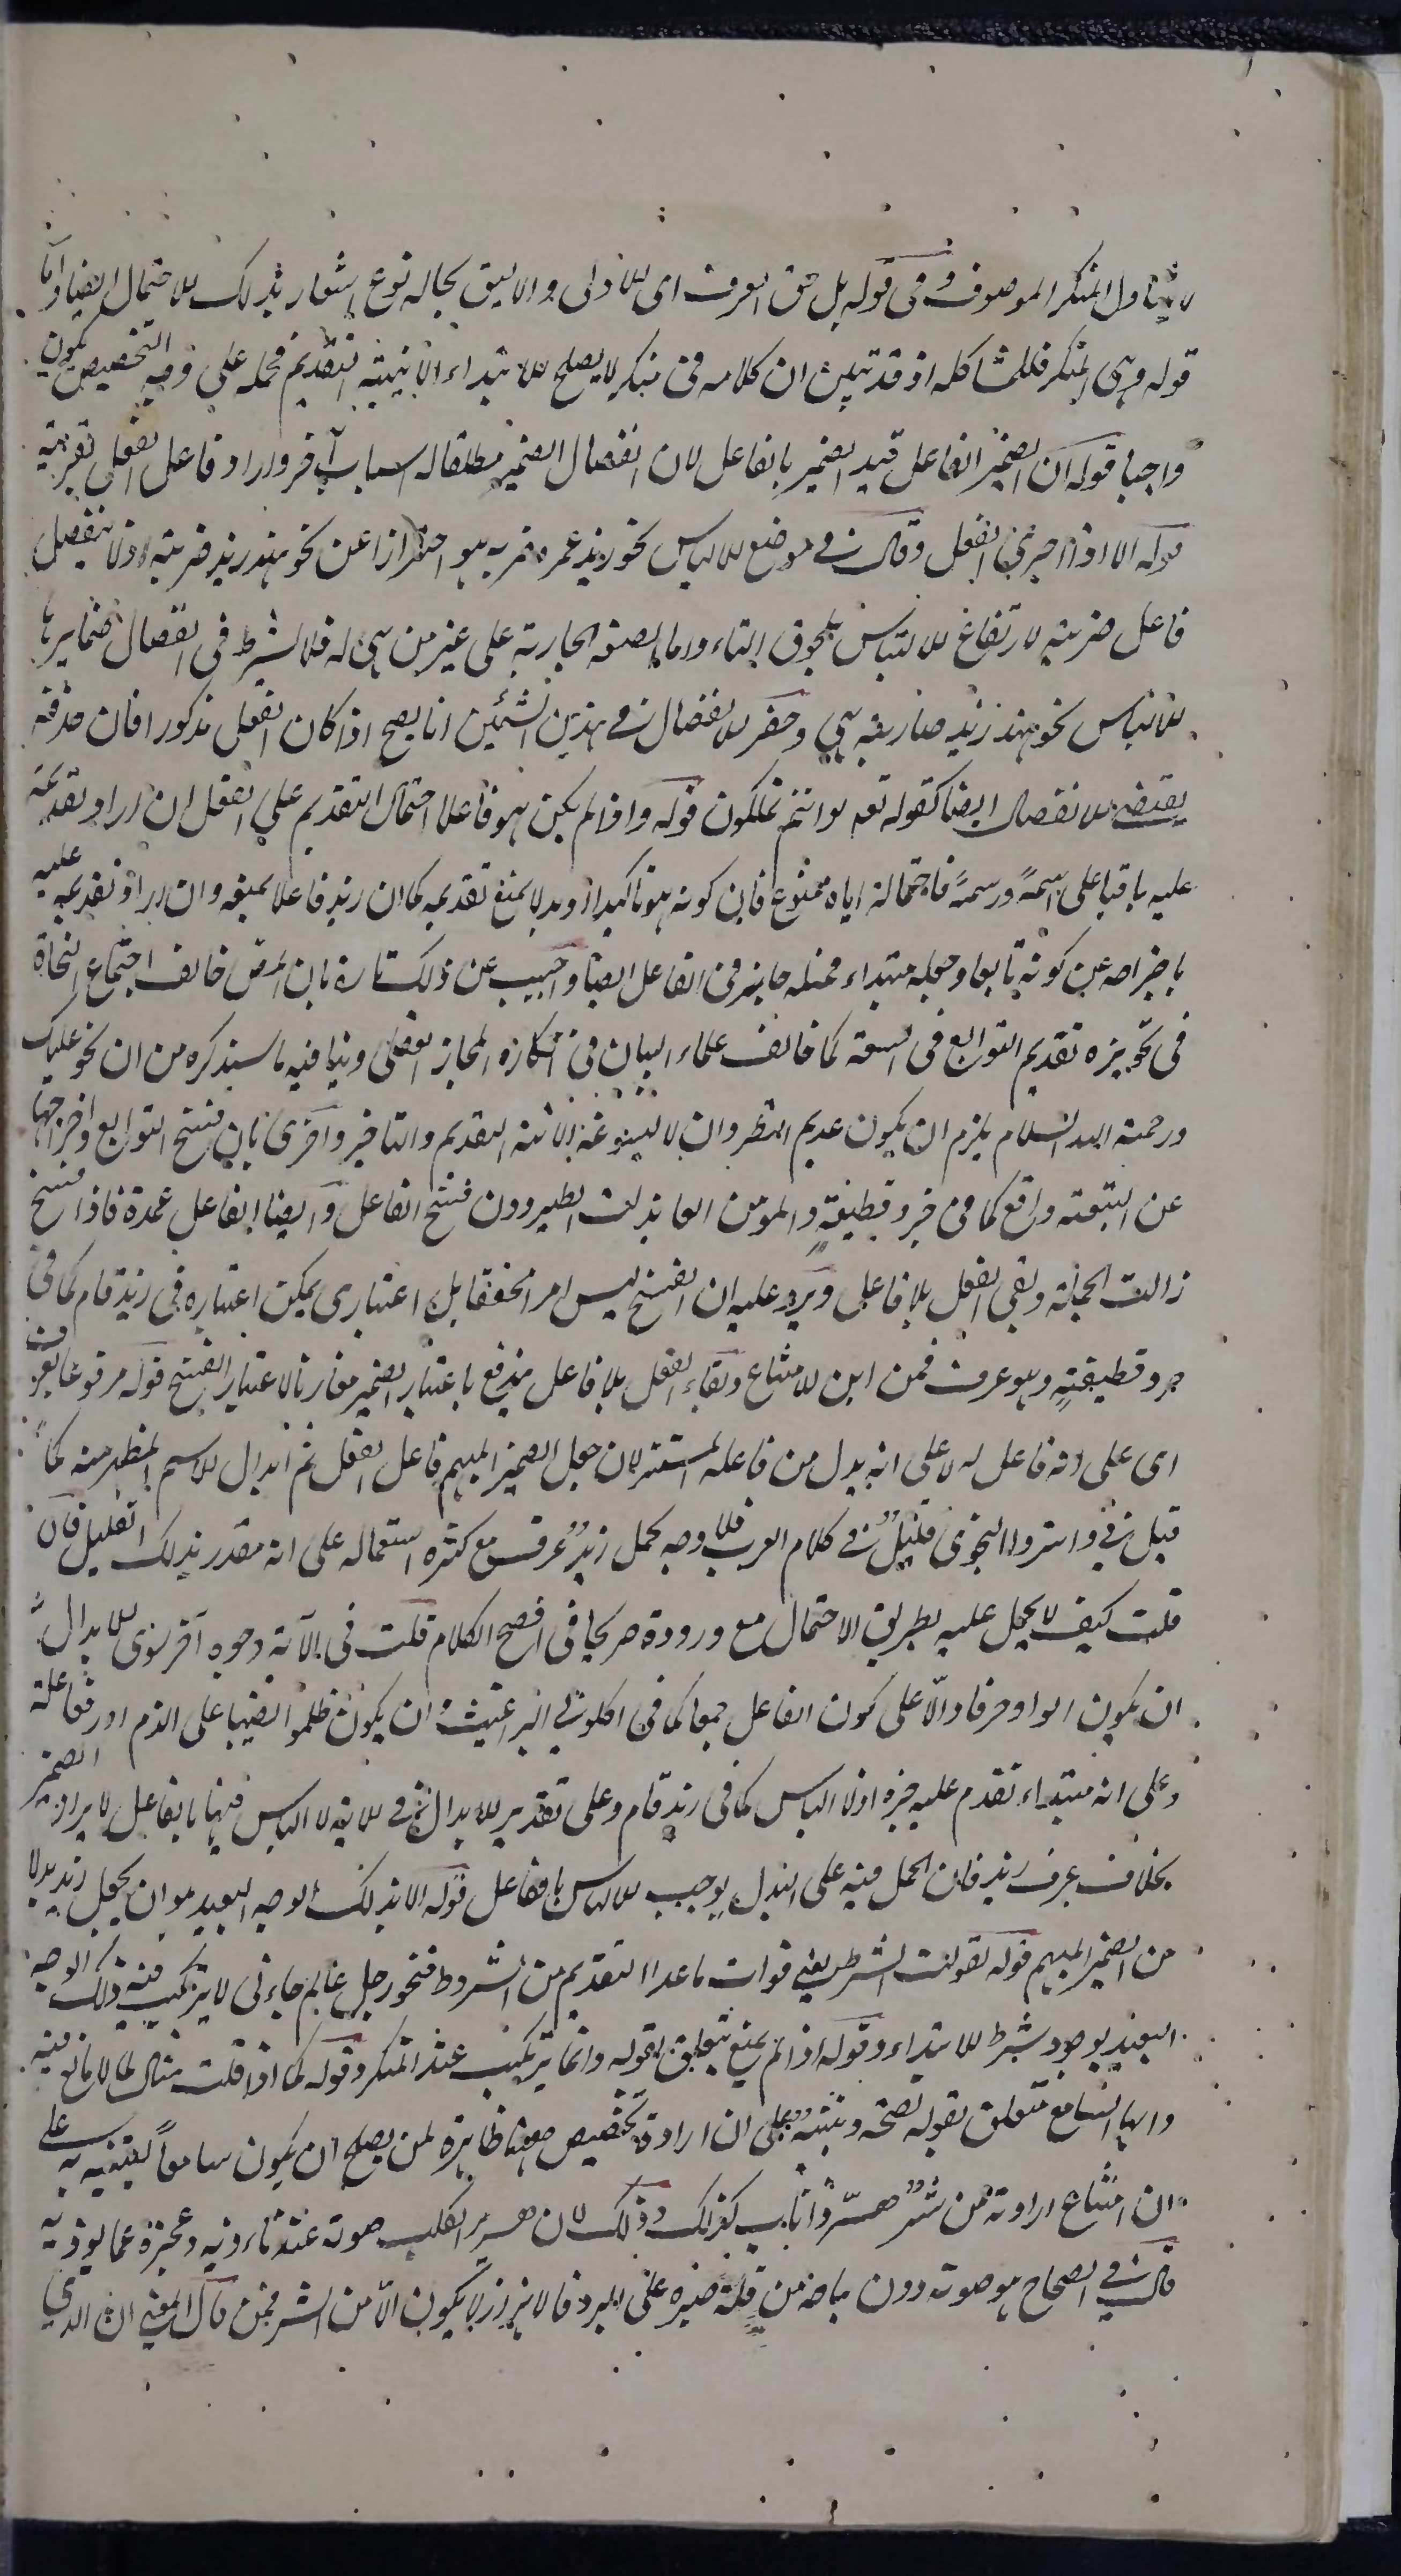 لا يتناول المنكر الموصوف وفى قوله بل حق المعرف اى للاولى والاليق بحاله نوع اشعار بذلك للاحتمال ايضا واما
قوله وهى المنكر فللمشاكله اذ قد تبين ان كلامه فى منكر لا يصلح للابتداء الا بنية التقديم فحمله على وجه التخصيص يكون
واجبا قوله ان الضمير الفاعل قيد الضمير بالفاعل لان انفصال الضمير مطلقا له اسباب آخر واراد فاعل الفعل بقرينة
قوله الا اذا جرى الفعل وقال فى موضع للالباس نحو زيد عمرو ضربه هو احترازا عن نحو هند زيد ضربته اذ لا ينفصل
فاعل ضربته لارتفاع للالتباس بلحوق التاء واما الصفة الجارية على غير من هى له فلا يشترط فى انفصال ضمايرها
للالباس نحو هند زيد ضاربته هى وحصر للانفصال فى هذين الشيئين انما يصح اذا كان الفعل مذكورا فان حذفه
يقتضى للانفصال ايضا كقوله تعم لو انتم تملكون قوله واذا لم يكن هو فاعلا احتمال التقديم على الفعل ان اراد تقديمه
عليه باقيا على اسمه ورسمه فاحتماله اياه ممنوع فان كونه هو تاكيدا او بدلا يمنع تقديمه كما ان زيد فاعلا يمنعه وان اراد تقديمه عليه
باخراجه عن كونه تابعا وجعله مبتداء فمثله جايز فى الفاعل ايضا واجيب عن ذلك تارة بان المص خالف اجتماع النحاة
فى تجويزه تقديم التوابع فى السعة كما خالف علماء البيان فى انكاره المجاز العقلى وينافيه ما سيذكره من ان نحو عليك
ورحمة الله السلام يلزم ان يكون عديم النظير وان لا يسوغه الا نية التقديم والتاخير واخرى بان فسخ التوابع واخراجها
عن التبعية واقع كما فى جرد قطيفة والمومن العايذات الطير دون فسخ الفاعل وايضا الفاعل عمدة فاذا فسخ
زالت الجملة وبقى الفعل بلا فاعل ويرد عليه ان الفسخ ليس امرا محققا بل اعتبارى يمكن اعتباره فى زيد قام كما فى
جرد قطيفة وهو عرف فمن اين للامتناع وبقاء الفعل بلا فاعل يندفع باعتبار الضمير مقارنا لاعتبار الفسخ قوله مرفوعا بعرف
اى على انه فاعل له لا على انه بدل من فاعله المستتر لان جعل الضمير المبهم فاعل الفعل ثم ابدال للاسم المظهر منه كما
قيل فى واسروا النجوى قليل فى كلام العرب فلا وجه لحمل زيد عرف مع كثرة استعماله على انه مقدر بذلك القليل فان
قلت كيف لا يحمل عليه بطريق الاحتمال مع وروده صريحا فى افصح الكلام قلت فى الآية وجوه آخر سوى للابدال
ان يكون الواو حرفا دالا على كون الفاعل جمعا كما فى اكلونى البراغيث وان يكون ظلموا نصبا على الذم او رفعا عليه
وعلى انه مبتداء تقدم عليه خبره اذ لا الباس كما فى زيد قام وعلى تقدير للابدال فى للاية لا الباس فيها بالفاعل لايراد الضمير
بخلاف عرف زيد فان الحمل فيه على البدل يوجب للالباس بالفاعل قوله الا بذلك الوجه البعيد هو ان يجعل زيد بدلا
من الضمير المبهم قوله لفوات الشرط يعنى فوات ما عدا التقديم من الشروط فنحو رجل عالم جاءنى لا يرتكب فيه ذلك الوجه
البعيد بوجود شرط للابتداء وقوله اذا لم يمنع يتعلق بقوله وانما يرتكب عند المنكر وقوله كما اذا قلت مثال لما لا مانع فيه
وايها السامع متعلق بقوله لصحة ونبه على ان ارادة تخصيص معنا ظاهرة لمن يصلح ان يكون سامعا لتنبيه به على
ان امتناع ارادته من شر اهر ذا ناب كذلك وذلك لان هرير الكلب صوته عند تاذيه وعجزه عما يوذيه
قال فى الصحاح هو صوته دون نباحه من قلة صبره على البرد فالاهرار لا يكون الا من الشر فمن قال المعنى ان الذى